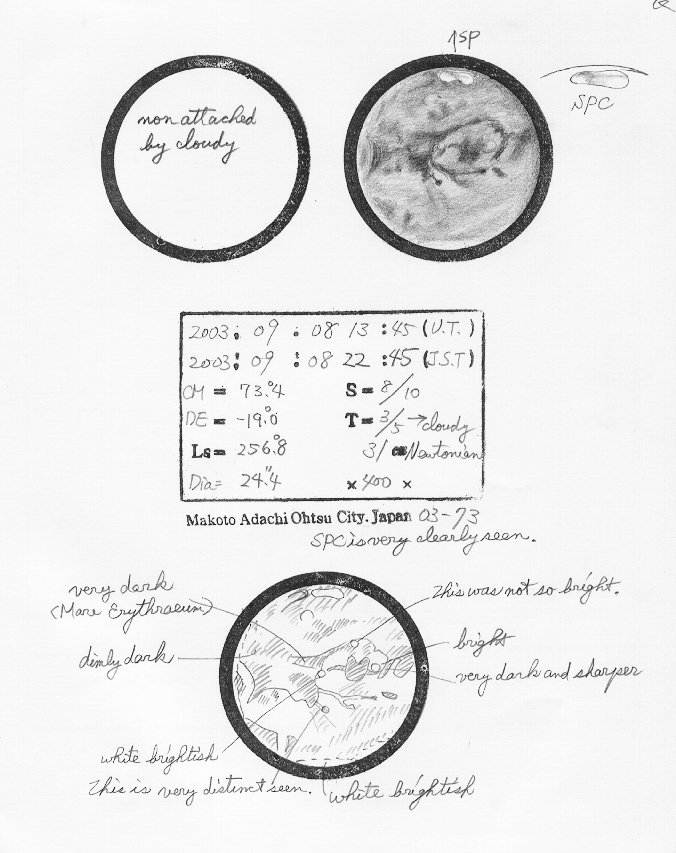 ↑SP
non attached
by cloudy
SPC
2003: 09 : 08 13 :45 (U.T.)
2003: 09 : 08 22 :45 (J.S.T)
CM = 73.°4 S = 8/10
DE = -19.°0 T = 3/5 →cloudy
Ls = 256.°8 31 cm Newtonian
Dia= 24."4 ×400 ×
Makoto Adachi Ohtsu City. Japan 03-73
SPC is very clearly seen.
very dark
(Mare Erythraeum)
This was not so bright.
bright
dimly dark
very dark and sharper
white brightish
This is very distinct seen.
white brightish